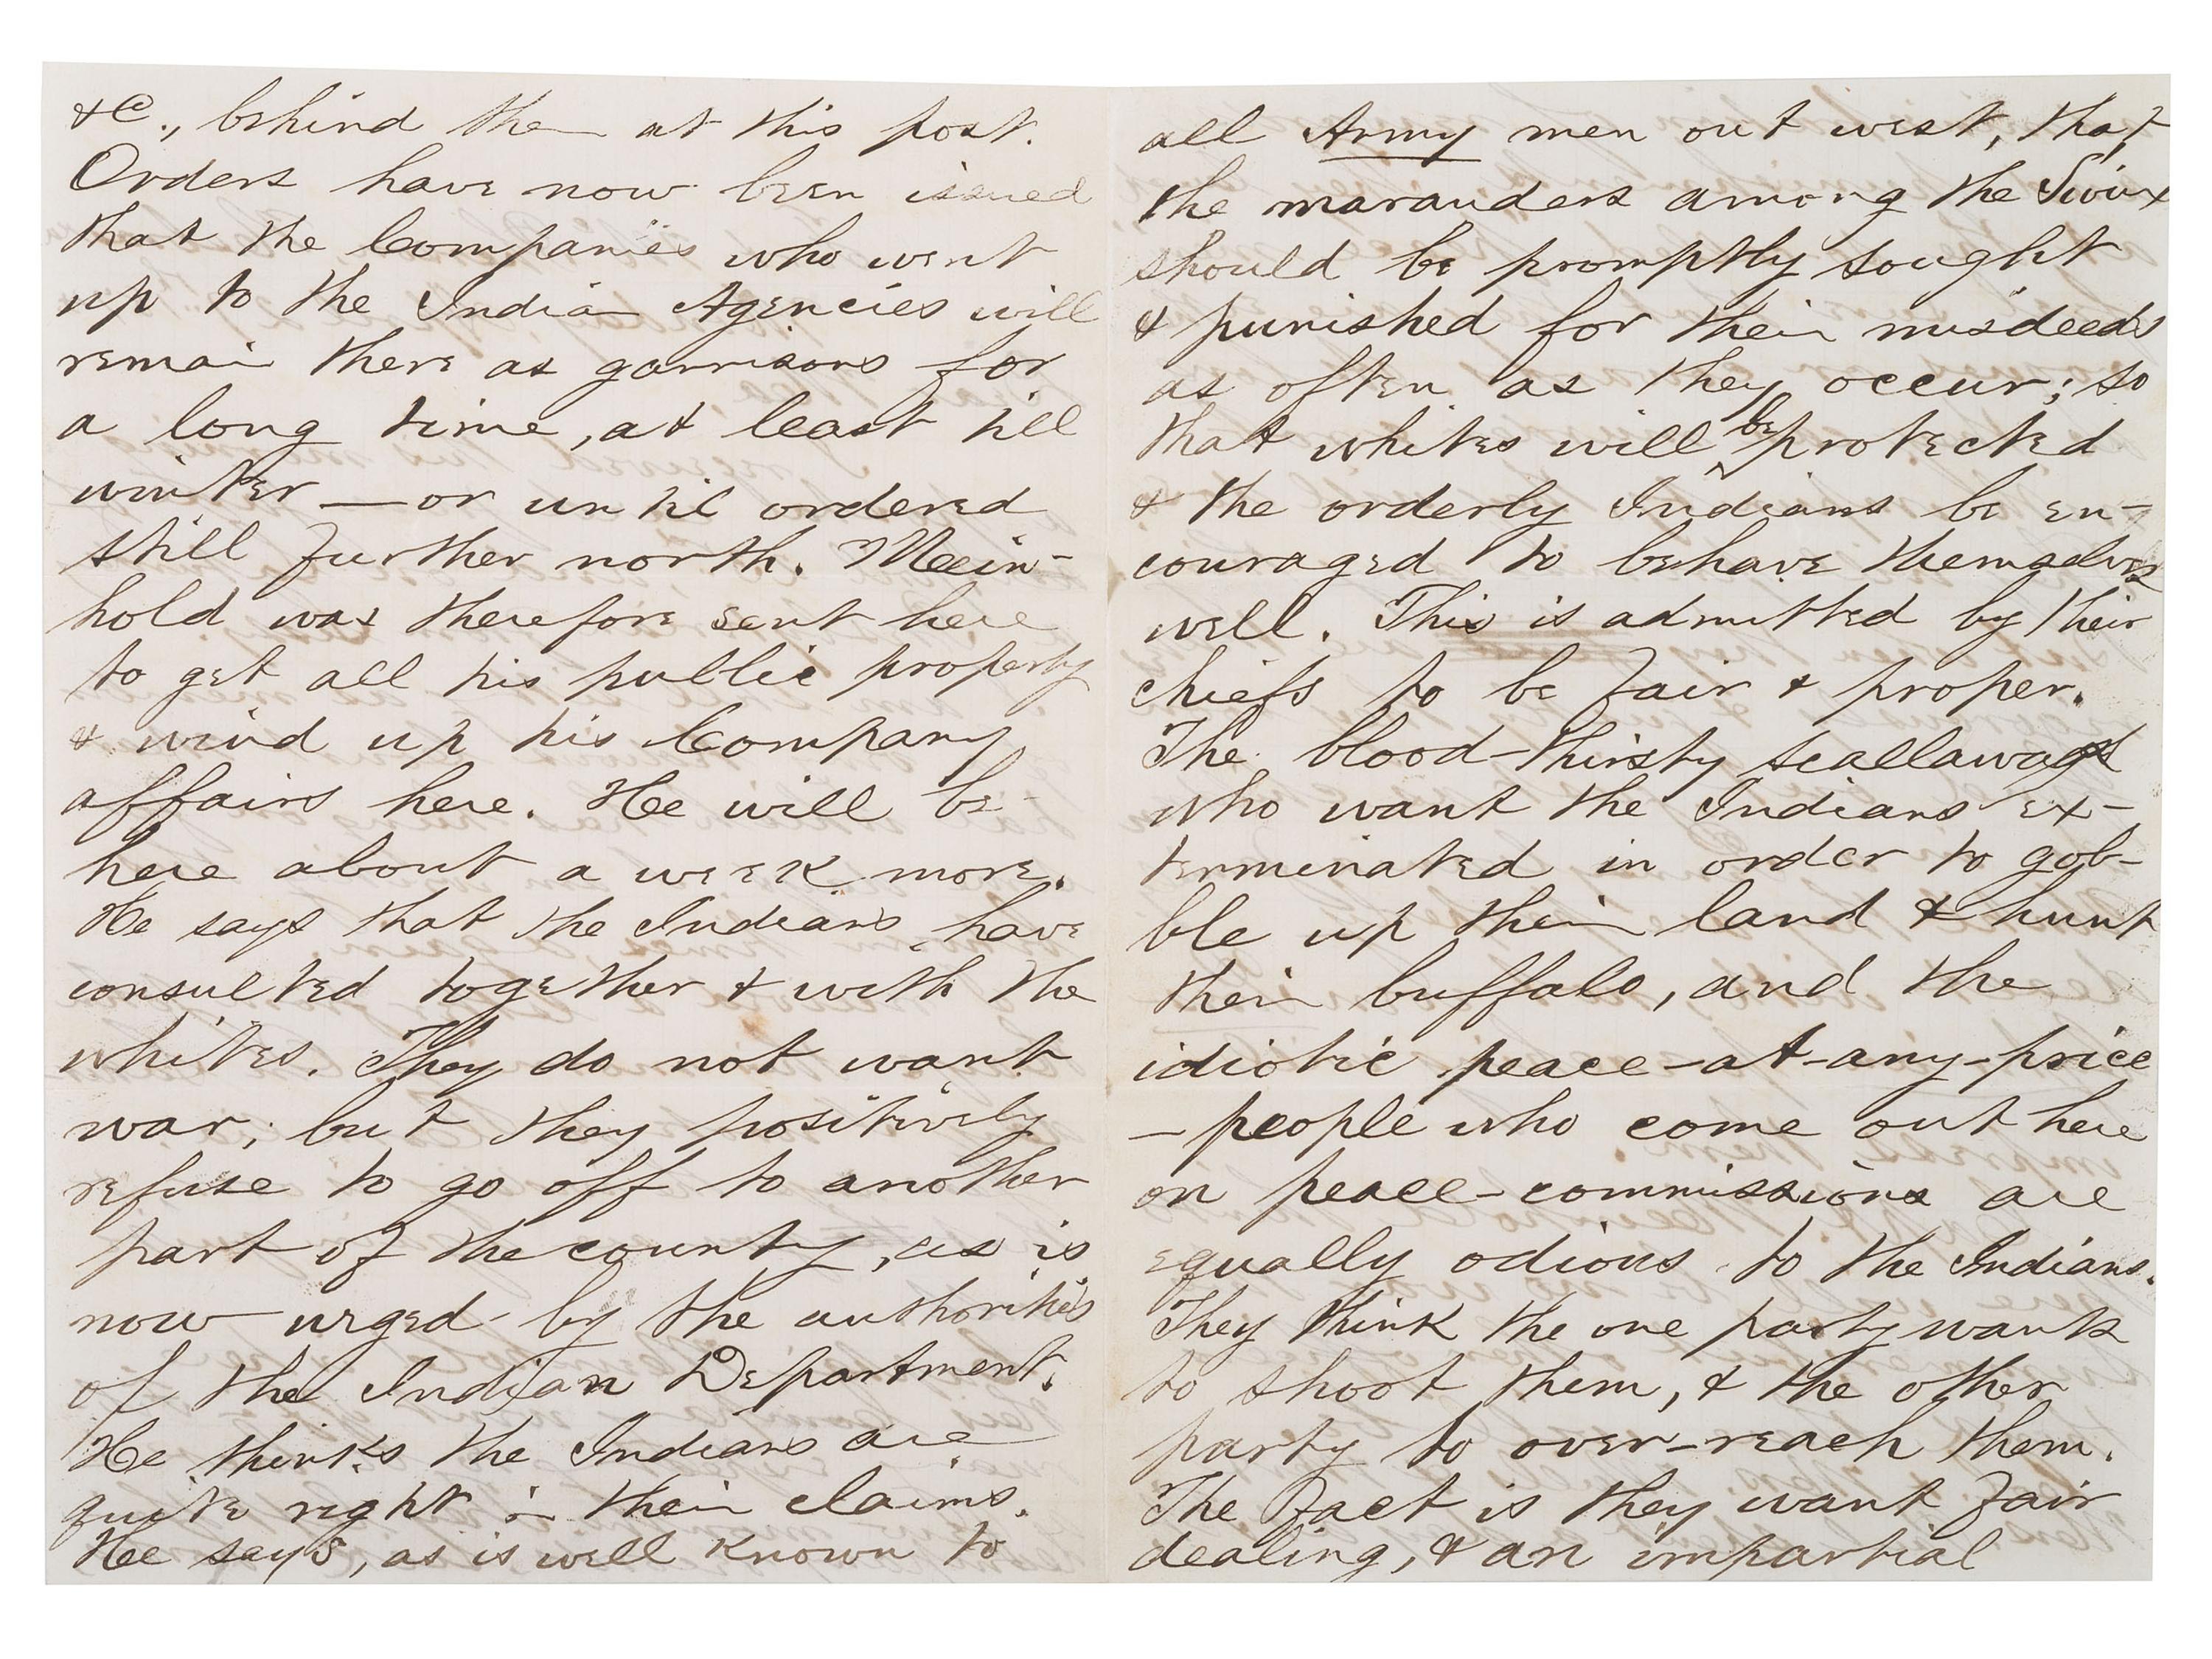 &c., behind them at this post.
Orders have now been issued
that the Companies who went
up to the Indian Agencies will
remain there as garrisons for
a long time, at least till
winter — or until ordered
still further north. Mein-
hold was therefore sent here
to get all his public property
& wind up his Company
affairs here. He will be
here about a week more.
He says that the Indians have
consulted together & with the
whites. They do not want
war; but they positively
refuse to go off to another
part of the country, as is
now urged by the authorities
of the Indian Department.
He thinks the Indians are
quite right in their claims.
He says, as is well known to
all Army men out west, that
the marauders among the Sioux
should be promptly sought
& punished for their misdeeds
as often as they occur; so
that whites will be protected
& the orderly Indians be en-
couraged to behave themselves
well. This is admitted by their
chiefs to be fair & proper.
The blood-thirsty scallawags
who want the Indians ex-
terminated in order to gob-
ble up their land & hunt
their buffalo, and the
idiotic peace-at-any-price
-people who come out here
on peace-commissions are
equally odious to the Indians.
They think the one party wants
to shoot them, & the other
party to over-reach them.
The fact is they want fair
dealing, & an impartial